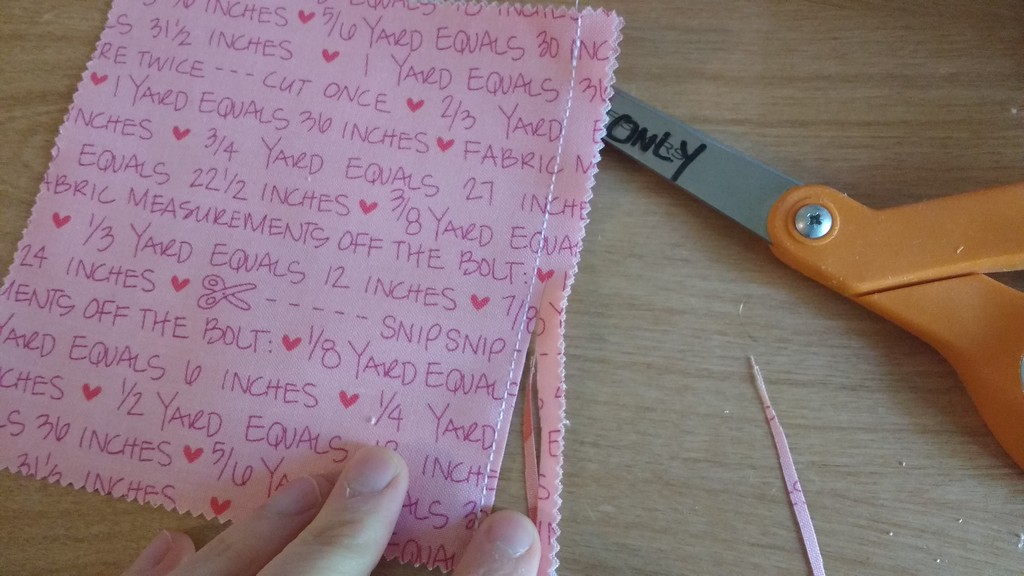 INCHES ♥ 5/6 YARD EQUALS 30 INC
S 31½ INCHES ♥ 1 YARD EQUALS 36
RE TWICE --- CUT ONCE ♥ 2/3 YARD
♥ 1 YARD EQUALS 36 INCHES ♥ FABRIC M
NCHES ♥ 3/4 YARD EQUALS 27 INCHE
EQUALS 22½ INCHES ♥ 3/8 YARD EQUA
ABRIC MEASUREMENTS OFF THE BOLT: ♥
♥ 1/3 YARD EQUALS 12 INCHES ♥ 7/8 Y
24 INCHES ♥ ----- SNIP SNIP
MENTS OFF THE BOLT: ♥ 1/8 YARD EQUAL
YARD EQUALS 6 INCHES ♥ 1/4 YARD E
CHES ♥ 1/2 YARD EQUALS INCHE S
LS 36 INCHES ♥ 5/6 YA UALS 3
31½ INCHES ♥ EQUAL
ONLY